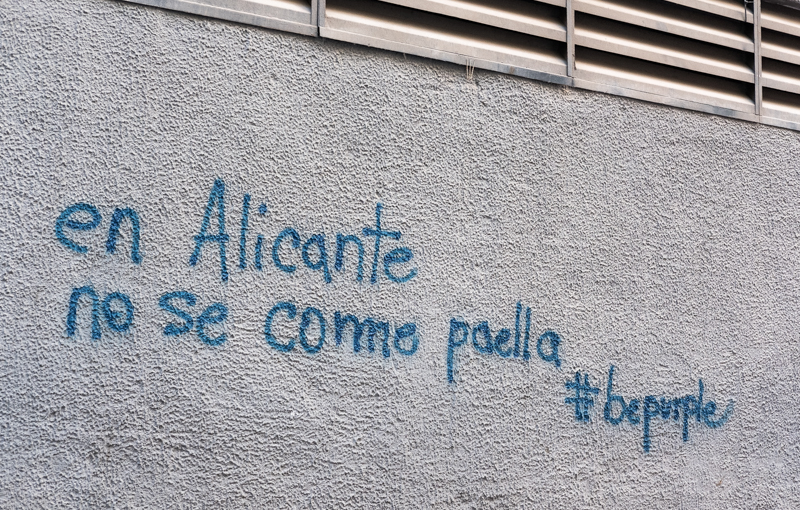 en Alicante
no se come paella
#bepurple